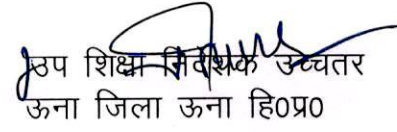 उप शिक्षा निदेशक उच्चतर
ऊना जिला ऊना हि०प्र०